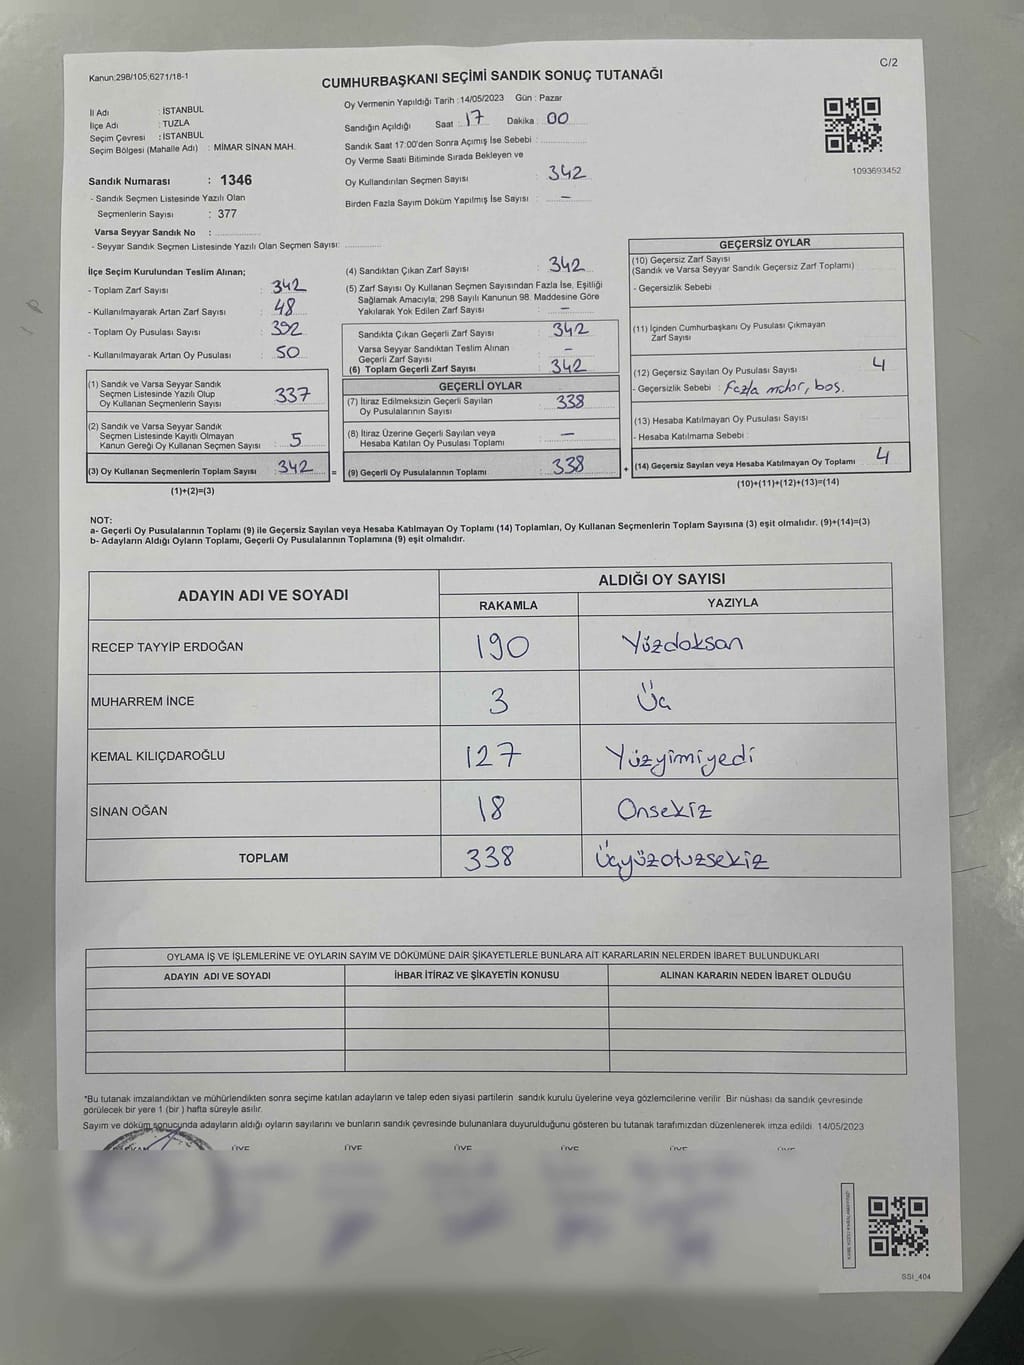 Kanun:298/105,6271/18-1
C/2
CUMHURBAŞKANI SEÇİMİ SANDIK SONUÇ TUTANAĞI
İl Adı : İSTANBUL
İlçe Adı : TUZLA
Seçim Çevresi : İSTANBUL
Seçim Bölgesi (Mahalle Adı) : MİMAR SİNAN MAH.
Sandık Numarası : 1346
- Sandık Seçmen Listesinde Yazılı Olan
Seçmenlerin Sayısı : 377
Varsa Seyyar Sandık No :
- Seyyar Sandık Seçmen Listesinde Yazılı Olan Seçmen Sayısı:
Oy Vermenin Yapıldığı Tarih :14/05/2023 Gün : Pazar
Sandığın Açıldığı Saat : 17 Dakika : 00
Sandık Saat 17:00'den Sonra Açımış İse Sebebi :
Oy Verme Saati Bitiminde Sırada Bekleyen ve
Oy Kullandırılan Seçmen Sayısı : 342
Birden Fazla Sayım Döküm Yapılmış İse Sayısı : —
1093693452
İlçe Seçim Kurulundan Teslim Alınan;
- Toplam Zarf Sayısı : 342
- Kullanılmayarak Artan Zarf Sayısı : 48
- Toplam Oy Pusulası Sayısı : 392
- Kullanılmayarak Artan Oy Pusulası : 50
(1) Sandık ve Varsa Seyyar Sandık
Seçmen Listesinde Yazılı Olup
Oy Kullanan Seçmenlerin Sayısı 337
(2) Sandık ve Varsa Seyyar Sandık
Seçmen Listesinde Kayıtlı Olmayan
Kanun Gereği Oy Kullanan Seçmen Sayısı : 5
(3) Oy Kullanan Seçmenlerin Toplam Sayısı : 342 =
(1)+(2)=(3)
(4) Sandıktan Çıkan Zarf Sayısı : 342
(5) Zarf Sayısı Oy Kullanan Seçmen Sayısından Fazla İse, Eşitliği
Sağlamak Amacıyla, 298 Sayılı Kanunun 98. Maddesine Göre
Yakılarak Yok Edilen Zarf Sayısı : —
Sandıkta Çıkan Geçerli Zarf Sayısı : 342
Varsa Seyyar Sandıktan Teslim Alınan
Geçerli Zarf Sayısı : —
(6) Toplam Geçerli Zarf Sayısı : 342
GEÇERLİ OYLAR
(7) İtiraz Edilmeksizin Geçerli Sayılan
Oy Pusulalarının Sayısı : 338
(8) İtiraz Üzerine Geçerli Sayılan veya
Hesaba Katılan Oy Pusulası Toplamı : —
(9) Geçerli Oy Pusulalarının Toplamı : 338 +
GEÇERSİZ OYLAR
(10) Geçersiz Zarf Sayısı
(Sandık ve Varsa Seyyar Sandık Geçersiz Zarf Toplamı)
- Geçersizlik Sebebi :
(11) İçinden Cumhurbaşkanı Oy Pusulası Çıkmayan
Zarf Sayısı
(12) Geçersiz Sayılan Oy Pusulası Sayısı 4
- Geçersizlik Sebebi : Fazla mühür, boş.
(13) Hesaba Katılmayan Oy Pusulası Sayısı
- Hesaba Katılmama Sebebi :
(14) Geçersiz Sayılan veya Hesaba Katılmayan Oy Toplamı 4
(10)+(11)+(12)+(13)=(14)
NOT:
a- Geçerli Oy Pusulalarının Toplamı (9) ile Geçersiz Sayılan veya Hesaba Katılmayan Oy Toplamı (14) Toplamları, Oy Kullanan Seçmenlerin Toplam Sayısına (3) eşit olmalıdır. (9)+(14)=(3)
b- Adayların Aldığı Oyların Toplamı, Geçerli Oy Pusulalarının Toplamına (9) eşit olmalıdır.
ADAYIN ADI VE SOYADI ALDIĞI OY SAYISI
RAKAMLA YAZIYLA
RECEP TAYYİP ERDOĞAN 190 Yüzdoksan
MUHARREM İNCE 3 Üç
KEMAL KILIÇDAROĞLU 127 Yüzyimiyedi
SİNAN OĞAN 18 Onsekiz
TOPLAM 338 Üçyüzotuzsekiz
OYLAMA İŞ VE İŞLEMLERİNE VE OYLARIN SAYIM VE DÖKÜMÜNE DAİR ŞİKAYETLERLE BUNLARA AİT KARARLARIN NELERDEN İBARET BULUNDUKLARI
ADAYIN ADI VE SOYADI İHBAR İTİRAZ VE ŞİKAYETİN KONUSU ALINAN KARARIN NEDEN İBARET OLDUĞU
*Bu tutanak imzalandıktan ve mühürlendikten sonra seçime katılan adayların ve talep eden siyasi partilerin sandık kurulu üyelerine veya gözlemcilerine verilir. Bir nüshası da sandık çevresinde
görülecek bir yere 1 (bir ) hafta süreyle asılır.
Sayım ve döküm sonucunda adayların aldığı oyların sayılarını ve bunların sandık çevresinde bulunanlara duyurulduğunu gösteren bu tutanak tarafımızdan düzenlenerek imza edildi. 14/05/2023
ÜYE ÜYE ÜYE ÜYE ÜYE ÜYE
SSI_404